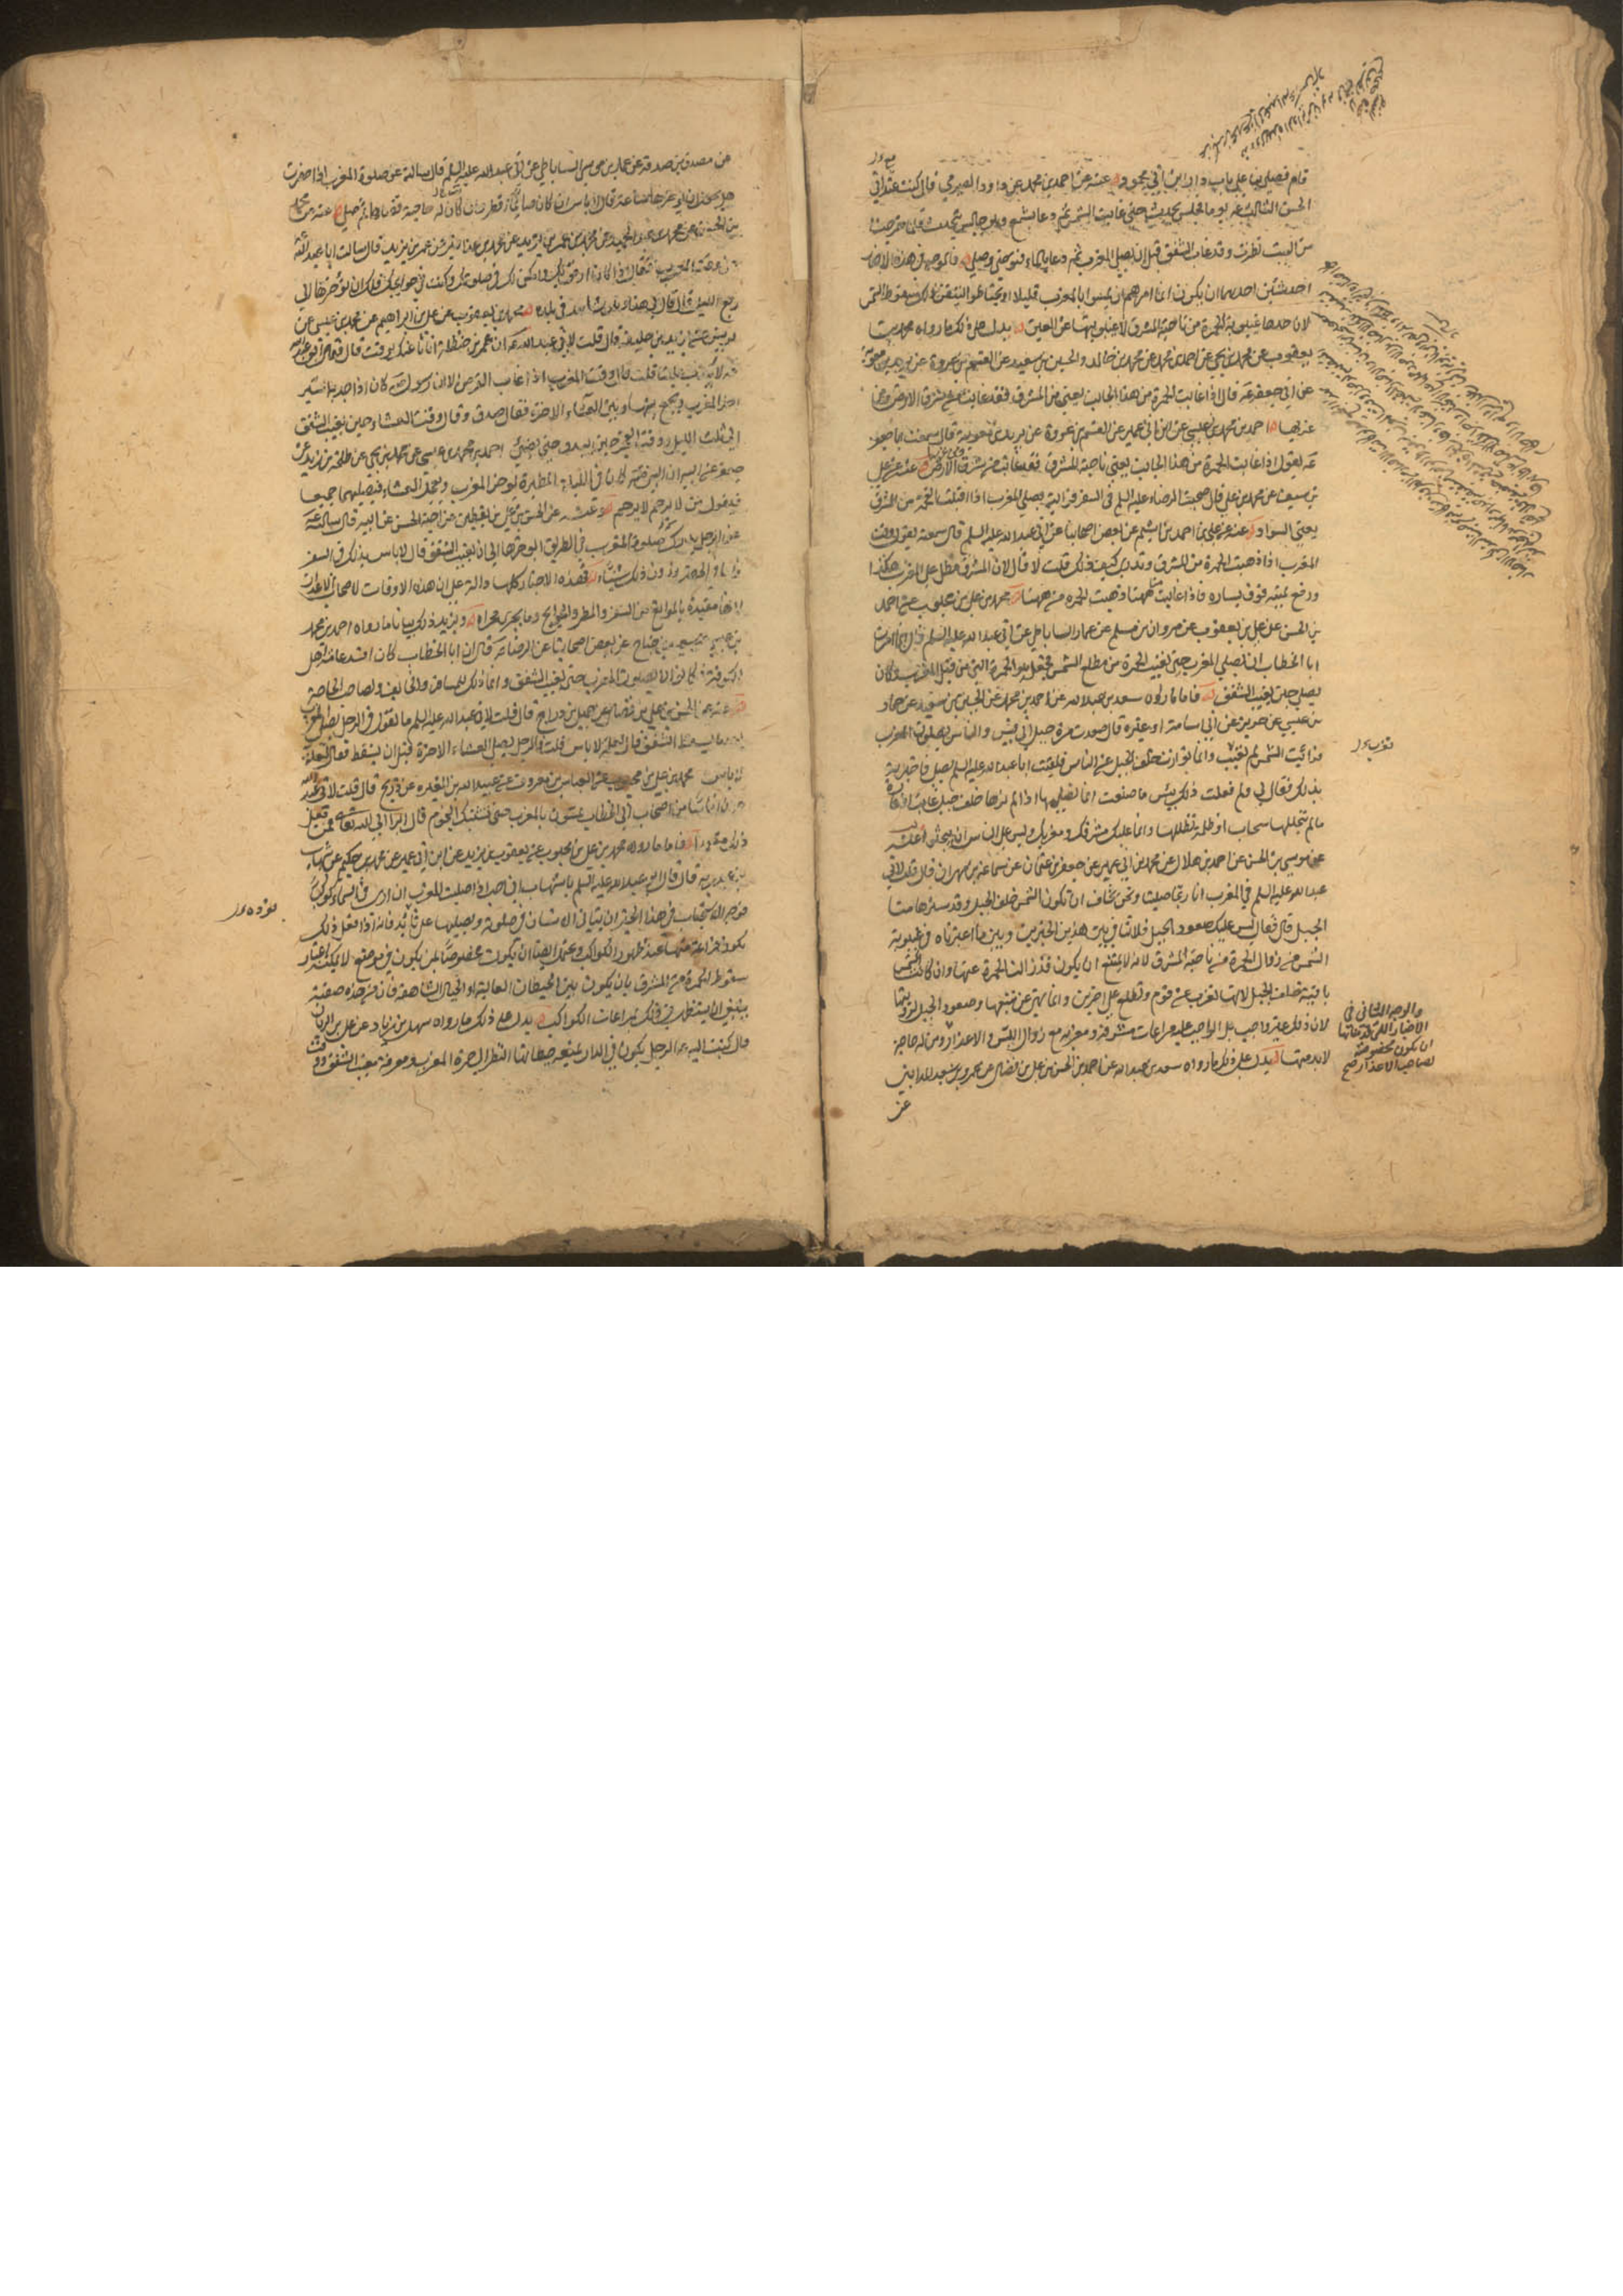 قام فصلينا على باب دار ابن ابي محمود عنه عن احمد بن محمد عن داود الصيرفي قال كنت عند ابي
الحسن الثالث عليه يوما فجلس يحدث حتى غابت الشمس ثم دعا بشمع وهو جالس يتحدث فلما خرجت
من البيت نظرت وقد غاب الشفق قبل ان يصلي المغرب ثم دعا بالماء فتوضى وصلى فالوجه في هذه الاخبار
احد شيئين احدهما ان يكون انما امرهم ان يمسوا بالمغرب قليلا او يحتاطوا ليتيقن بذلك سقوط الشمس
لان حدها غيبوبة الحمرة من ناحية المشرق لا غيبوبتها عن العين يدل على ذلك ما رواه محمد بن
يعقوب عن محمد بن يحيى عن احمد بن محمد عن محمد بن خالد والحسين بن سعيد عن القسم بن عروة عن بريد بن معوية
عن ابي جعفر ع قال اذا غابت الحمرة من هذا الجانب يعني من المشرق فقد غابت الشمس من شرق الارض ومن
غربها احمد بن محمد بن عيسى عن ابن ابي عمير عن القسم بن عروة عن بريد بن معوية قال سمعت ابا جعفر
ع يقول اذا غابت الحمرة من هذا الجانب يعني ناحية المشرق فقد غابت من شرق الارض عنه عن علي
بن سيف عن محمد بن علي قال صحبت الرضا عليه السلم في السفر فرايته يصلي المغرب اذا اقبلت الفحمة من المشرق
يعني السواد عنه عن علي بن احمد بن اشيم عن بعض اصحابنا عن ابي عبد الله عليه السلم قال سمعته يقول وقت
المغرب اذا ذهبت الحمرة من المشرق وتدري كيف ذلك قلت لا قال لان المشرق مطل على المغرب هكذا
ورفع يمينه فوق يساره فاذا غابت ههنا ذهبت الحمرة من ههنا محمد بن علي بن محبوب عن احمد
بن الحسن عن علي بن يعقوب عن مروان بن مسلم عن عمار الساباطي عن ابي عبد الله عليه السلم قال انما امرت
ابا الخطاب ان يصلي المغرب حين تغيب الحمرة من مطلع الشمس فجعل هو الحمرة التي من قبل المغرب وكان
يصلي حين يغيب الشفق فاما ما رواه سعد بن عبد الله عن احمد بن محمد عن الحسين بن سعيد عن حماد
بن عيسى عن حريز عن ابي اسامة او غيره قال صعدت مرة جبل ابي قبيس والناس يصلون المغرب
فرايت الشمس لم تغيب وانما توارت خلف الجبل عن الناس فلقيت ابا عبد الله عليه السلم يصلي فاخبرته
بذلك فقال لي ولم فعلت ذلك بئس ما صنعت انما تصليها اذا لم ترها خلف جبل غابت او غارت
ما لم يتجللها سحاب او ظلمة تظللها وانما عليك مشرقك ومغربك وليس على الناس ان يبحثوا عنه
عن موسى بن الحسن عن احمد بن هلال عن محمد بن ابي عمير عن جعفر بن عثمان عن سماعة بن مهران قال قلت لابي
عبد الله عليه السلم في المغرب انا ربما صلينا ونحن نخاف ان تكون الشمس خلف الجبل وقد سترها منا
الجبل قال فقال ليس عليك صعود الجبل فلا تنافي بين هذين الخبرين وبين ما اعتبرناه في غيبوبة
الشمس من زوال الحمرة من ناحية المشرق لانه لا يمتنع ان يكون قد زالت الحمرة عنها وان كانت الشمس
باقية خلف الجبل لانها تغرب عن قوم وتطلع على اخرين وانما نهى عن تتبعها وصعود الجبل لرؤيتها
لان ذلك غير واجب بل الواجب عليه مراعات مشرقه ومغربه مع زوال اللبس والاعذار ومن له حاجة
لا بد منها يدل على ذلك ما رواه سعد بن عبد الله عن احمد بن الحسن بن علي بن فضال عن عمرو بن سعيد المدايني
عن
والوجه الثاني في
الاخبار التي قدمناها
ان يكون مخصوصة
لصاحب الاعذار صح
عن مصدق بن صدقة عن عمار بن موسى الساباطي عن ابي عبد الله عليه السلم قال سالته عن صلوة المغرب اذا حضرت
هل يجوز ان يؤخرها ساعة قال لا باس ان كان صائما افطر وان كان له حاجة قضاها ثم صلى عنه عن محمد
بن الحسين عن محمد بن عبد الحميد عن محمد بن عمر بن يزيد عن محمد بن عذافر عن عمر بن يزيد قال سالت ابا عبد الله
عن وقت المغرب فقال اذا كان ارفق بك وامكن لك في صلوتك وكنت في حوايجك فلك ان تؤخرها الى
ربع الليل قال قال لي هذا وهو شاهد في بلده محمد بن يعقوب عن علي بن ابراهيم عن محمد بن عيسى عن
يونس عن يزيد بن خليفة قال قلت لابي عبد الله ع ان عمر بن حنظلة اتانا عنك بوقت قال فقال ابو عبد الله
ع لا يكذب علينا قلت قال وقت المغرب اذا غاب القرص الا ان رسول الله كان اذا جد به السير
اخر المغرب ويجمع بينها وبين العشاء الاخرة فقال صدق وقال وقت العشاء حين يغيب الشفق
الى ثلث الليل ووقت الفجر حين يبدو حتى يضئ احمد بن محمد بن عيسى عن محمد بن يحيى عن طلحة بن زيد عن
جعفر عن ابيه ان النبي ص كان في الليلة المطيرة يؤخر المغرب ويعجل العشاء فيصليهما جميعا
فيقول من لا يرحم لا يرحم وعنه عن الحسن بن علي بن يقطين عن اخيه الحسين عن ابيه قال سالته ع
عن الرجل يدركه صلوة المغرب في الطريق ايؤخرها الى ان يغيب الشفق قال لا باس بذلك في السفر
واما في الحضر فدون ذلك شيئا فهذه الاخبار كلها دالة على ان هذه الاوقات لاصحاب الاعذار
لانها مقيدة بالموانع من السفر والمطر والحوايج وما يجري مجراه ويزيد ذلك بيانا ما رواه احمد بن محمد
بن عيسى عن سعيد بن جناح عن بعض اصحابنا عن الرضا ع قال ان ابا الخطاب كان افسد عامة اهل
الكوفة وكانوا لا يصلون المغرب حتى يغيب الشفق وانما ذلك للمسافر والخائف ولصاحب الحاجة
عنه عن الحسن بن علي بن فضال عن جميل بن دراج قال قلت لابي عبد الله عليه السلم ما تقول في الرجل يصلي المغرب
بعد ما يسقط الشفق فقال لعلة لا باس قلت فالرجل يصلي العشاء الاخرة قبل ان يسقط فقال لعلة
لا باس محمد بن علي بن محبوب عن العباس بن معروف عن عبد الله بن المغيرة عن ذريح قال قلت لابي عبد الله
ان اناسا من اصحاب ابي الخطاب يمسون بالمغرب حتى تشتبك النجوم قال ابرا الى الله تعالى ممن فعل
ذلك متعمدا فاما ما رواه محمد بن علي بن محبوب عن يعقوب بن يزيد عن ابن ابي عمير عن محمد بن حكيم عن شهاب
بن عبد ربه قال قال ابو عبد الله عليه السلم يا شهاب اني احب اذا صليت المغرب ان ارى في السماء كوكبا
فوجه الاستحباب في هذا الخبر ان يتانى الانسان في صلوته ويصليها على تؤدة فانه اذا فعل ذلك
يكون فراغه منها عند ظهور الكواكب ويحتمل ايضا ان يكون مخصوصا بمن يكون في موضع لا يمكنه اعتبار
سقوط الحمرة من المشرق بان يكون بين الحيطان العالية او الجبال الشاهقة فان من هذه صفته
ينبغي ان يستظهر في ذلك بمراعات الكواكب يدل على ذلك ما رواه سهل بن زياد عن علي بن الريان
قال كتبت اليه الرجل يكون في الدار يمنعه حيطانها النظر الى حمرة المغرب ومعرفة مغيب الشفق ووقت